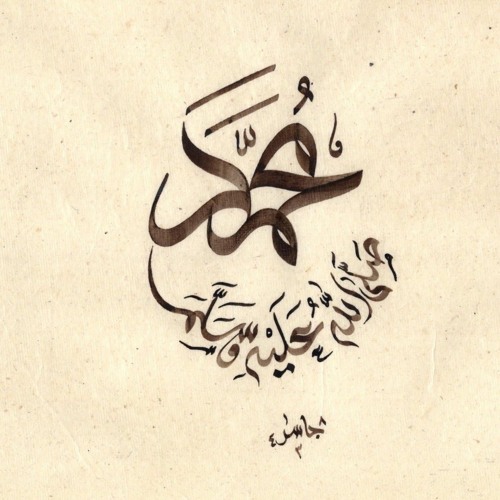 مُحَمَّد
صَلَّى اللّٰه عَلَيْهِ وَسَلَّمَ